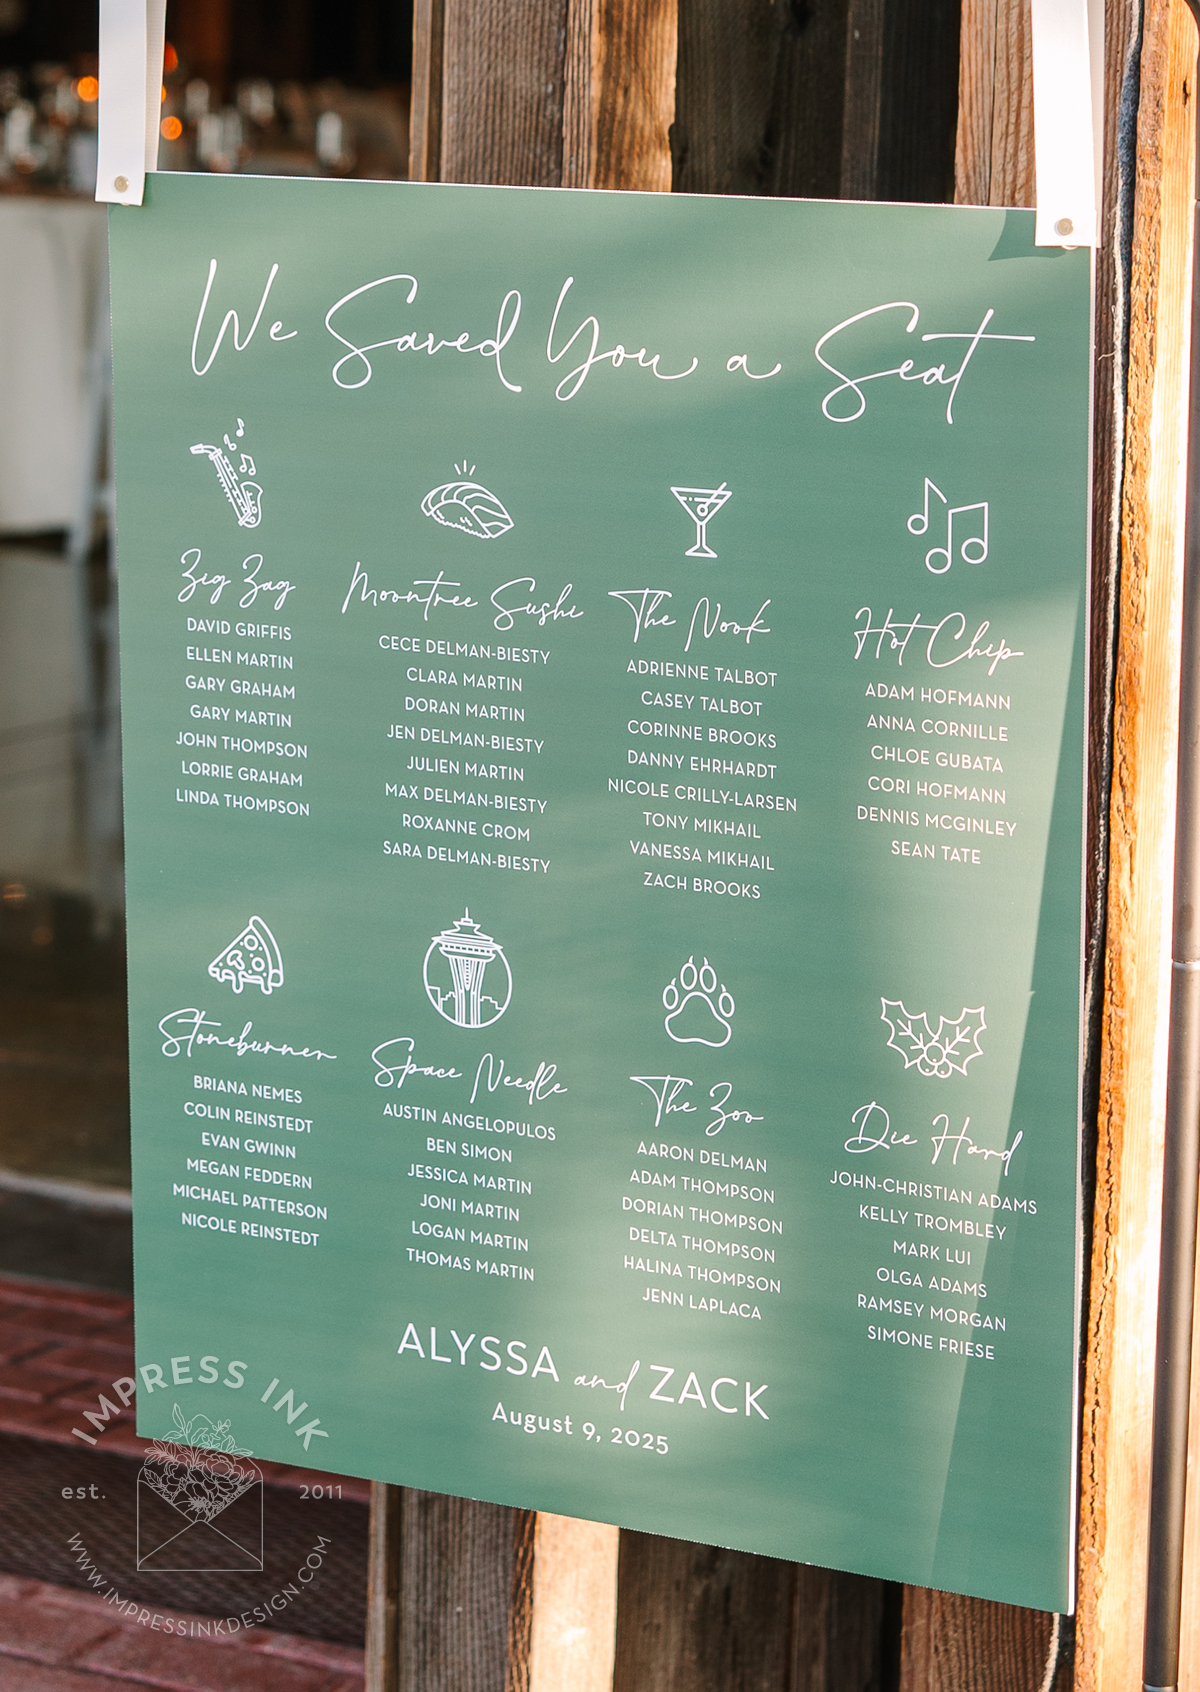 We Saved You a Seat
Zig Zag
DAVID GRIFFIS
ELLEN MARTIN
GARY GRAHAM
GARY MARTIN
JOHN THOMPSON
LORRIE GRAHAM
LINDA THOMPSON
Moontree Sushi
CECE DELMAN-BIESTY
CLARA MARTIN
DORAN MARTIN
JEN DELMAN-BIESTY
JULIEN MARTIN
MAX DELMAN-BIESTY
ROXANNE CROM
SARA DELMAN-BIESTY
The Nook
ADRIENNE TALBOT
CASEY TALBOT
CORINNE BROOKS
DANNY EHRHARDT
NICOLE CRILLY-LARSEN
TONY MIKHAIL
VANESSA MIKHAIL
ZACH BROOKS
Hot Chip
ADAM HOFMANN
ANNA CORNILLE
CHLOE GUBATA
CORI HOFMANN
DENNIS MCGINLEY
SEAN TATE
Stoneburner
BRIANA NEMES
COLIN REINSTEDT
EVAN GWINN
MEGAN FEDDERN
MICHAEL PATTERSON
NICOLE REINSTEDT
Space Needle
AUSTIN ANGELOPULOS
BEN SIMON
JESSICA MARTIN
JONI MARTIN
LOGAN MARTIN
THOMAS MARTIN
The Zoo
AARON DELMAN
ADAM THOMPSON
DORIAN THOMPSON
DELTA THOMPSON
HALINA THOMPSON
JENN LAPLACA
Die Hard
JOHN-CHRISTIAN ADAMS
KELLY TROMBLEY
MARK LUI
OLGA ADAMS
RAMSEY MORGAN
SIMONE FRIESE
ALYSSA and ZACK
August 9, 2025
IMPRESS INK
est. 2011
WWW.IMPRESSINKDESIGN.COM